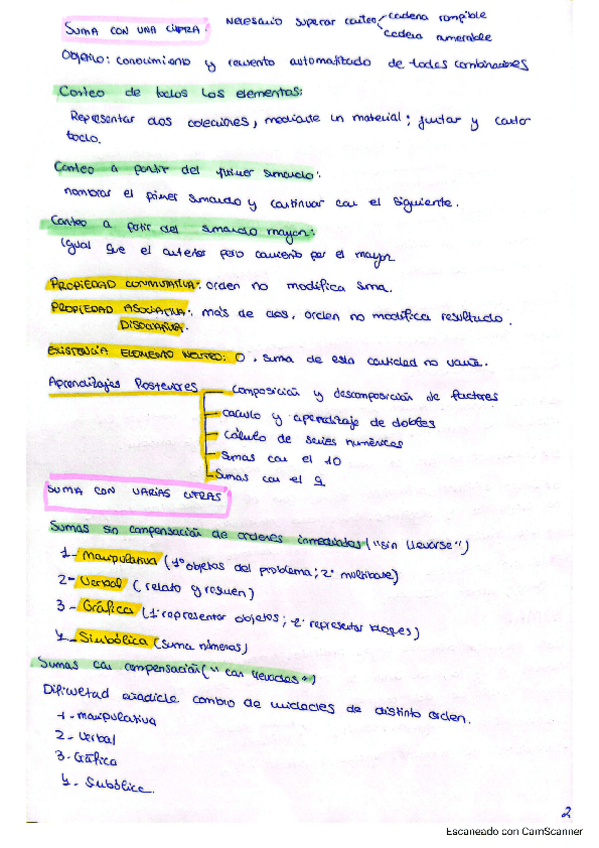 SUMA CON UNA CIFRA: Necesario superar conteo cadena rompible
cadena numerable
Objetivo: conocimiento y recuento automatizado de todas combinaciones
Conteo de todos los elementos:
Representar dos colecciones, mediante un material; juntar y contar
todo.
Conteo a partir del primer sumando:
nombrar el primer sumando y continuar con el siguiente.
Conteo a partir del sumando mayor:
Igual que el anterior pero comienzo por el mayor
PROPIEDAD CONMUTATIVA: orden no modifica suma.
PROPIEDAD ASOCIATIVA: más de dos, orden no modifica resultado.
DISOCIATIVA.
EXISTENCIA ELEMENTO NEUTRO: 0, suma de esta cantidad no varía.
Aprendizajes Posteriores - composición y descomposición de factores
- cálculo y aprendizaje de dobles
- cálculo de series numéricas
- sumas con el 10
- sumas con el 9
SUMA CON VARIAS CIFRAS
Sumas sin compensación de ordenes inmediatos ("sin llevarse")
1- Manipulativa (1º objetos del problema; 2º multibase)
2- Verbal (relato y resuen)
3- Gráfica (1º representar objetos; 2º representar bloques)
4- Simbólica (suma números)
Sumas con compensación ("con llevadas")
Dificultad añadida cambio de unidades de distinto orden.
1- manipulativa
2- Verbal
3- Gráfica
4- Simbólica.
2
Escaneado con CamScanner